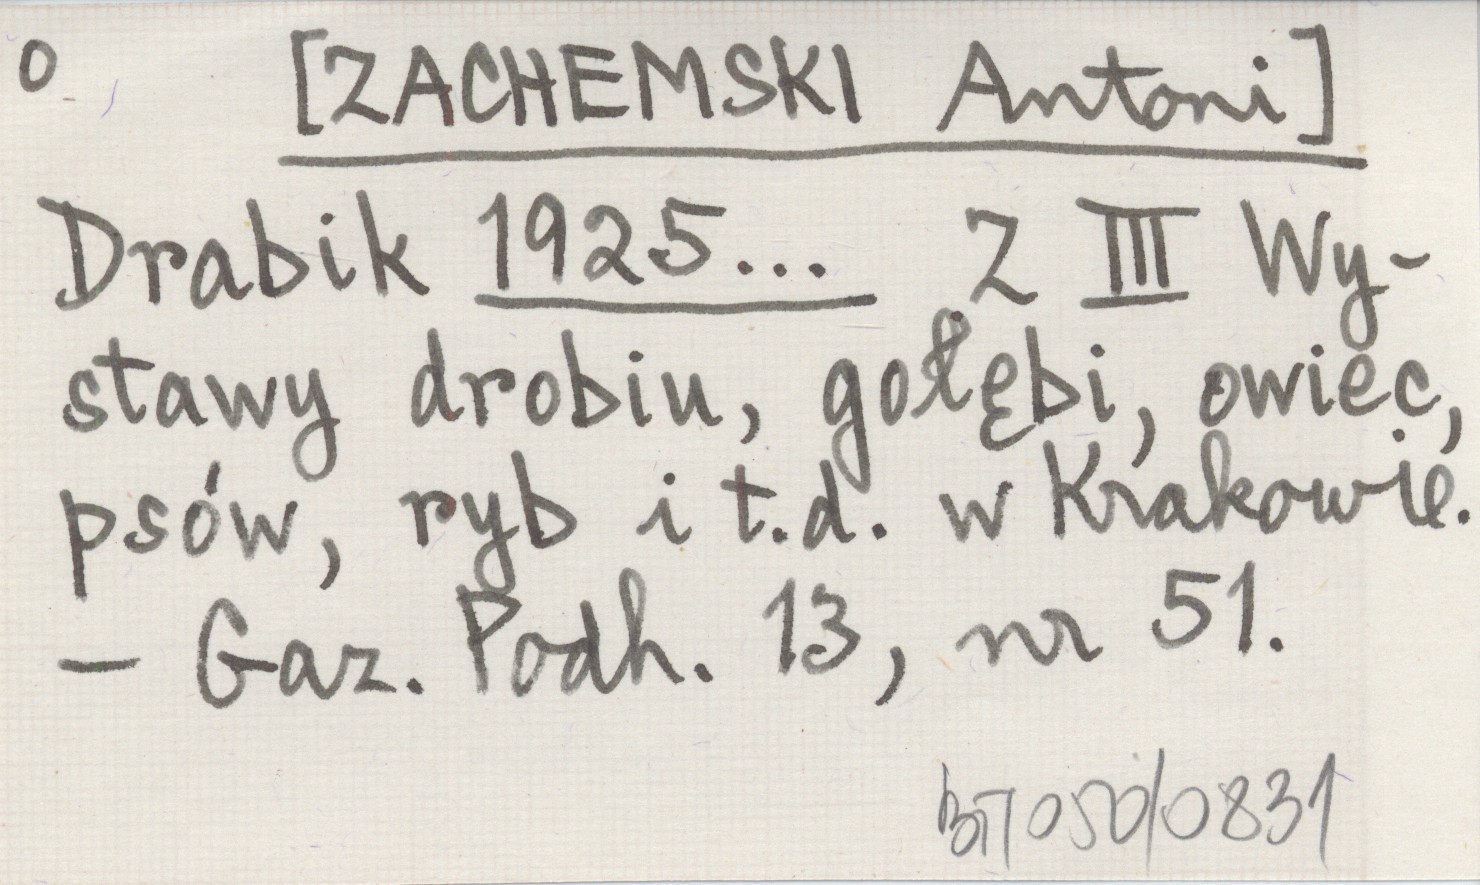 o [ZACHEMSKI Antoni]
Drabik 1925... Z III Wy-
stawy drobiu, gołębi, owiec,
psów, ryb i t.d. w Krakowie.
- Gaz. Podh. 13, nr 51.
050/0831